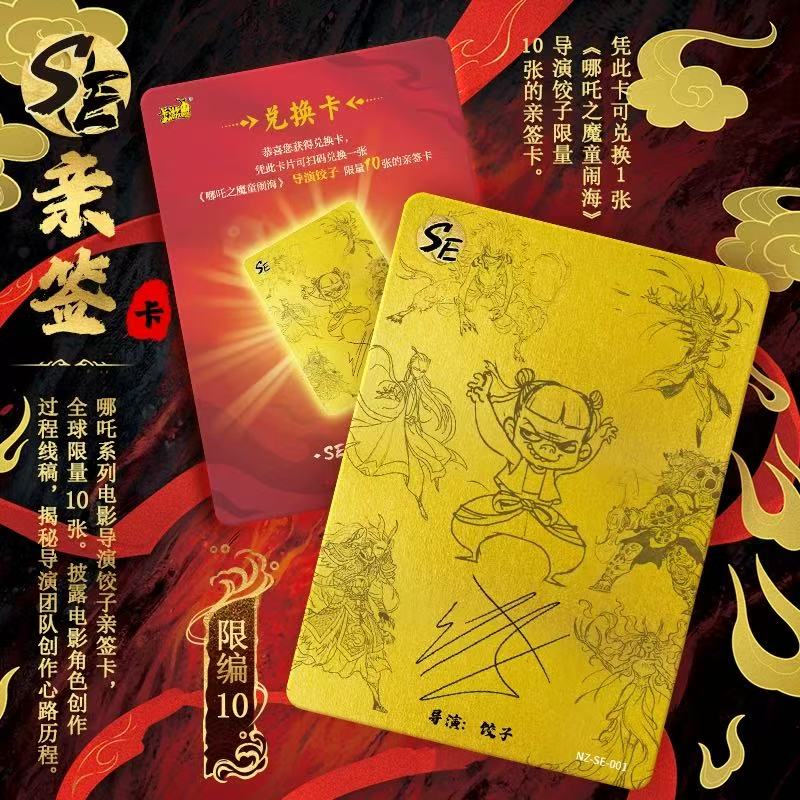 SE
亲签
卡
哪吒系列电影导演饺子亲签卡，
全球限量10张。披露电影角色创作
过程线稿，揭秘导演团队创作心路历程。
卡游
兑换卡
恭喜您获得兑换卡，
凭此卡片可扫码兑换一张
《哪吒之魔童闹海》 导演饺子 限量10张的亲签卡
SE
·SE
凭此卡可兑换1张
《哪吒之魔童闹海》
导演饺子限量
10张的亲签卡。
SE
导演：饺子
NZ-SE-001
限编
10